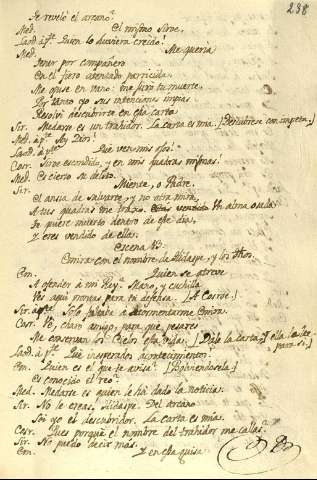 238
Se reveló el arcano?
Med. El mismo Siroe.
Laod. ap.te Quien lo huviera creido!
Med. Me queria
tener por compañero
En el fiero atentado parricida.
Me opuse en vano: me juró tu muerte.
Por tanto yo sus intenciones impias
Resolvi descubrirte en esta carta
Sir. Medarse es un trahidor. La carta es mia. [Descubrese con impetu.]
Med. ap.te Soy Dios!
Laod. ap.te Que ven mis ojos!
Cosr. Siroe escondido, y en mis quadras mismas.
Med. Es cierto su delito.
Sir. Miente, o Padre.
El ansia de salvarte, y no otra mira,
A tus quadras me traxo. Un alma osada
Te quiere muerto dentro de este dia,
Y eres vendido de ella.
Escena 13.
Emira con el nombre de Hidaspe, y los dhos.
Em. Quien se atreve
A ofender á mi Rey? Mano, y cuchilla
Ves aqui prontas para tu defensa. [A Cosroe.]
Sir. ap.te Solo faltaba a atormentarme Emira.
Cosr. Ve, charo amigo, para que pesares
Me conservan los Cielos esta vida. [Dale la carta, y ella lo lee para sí.]
Laod. ap.te Que inesperados acontecimientos.
Em. Quien es el que te avisa? [Bolviendosela]
Es conocido el reo?
Med. Medarse es quien le há dado la noticia.
Sir. No le creas, Hidaspe. Del arcano
Soi yo el descubridor. La carta es mia.
Cosr. Pues porquè el nombre del trahidor me callas?
Sir. No puedo decir mas.
Em. Y en esta guisa